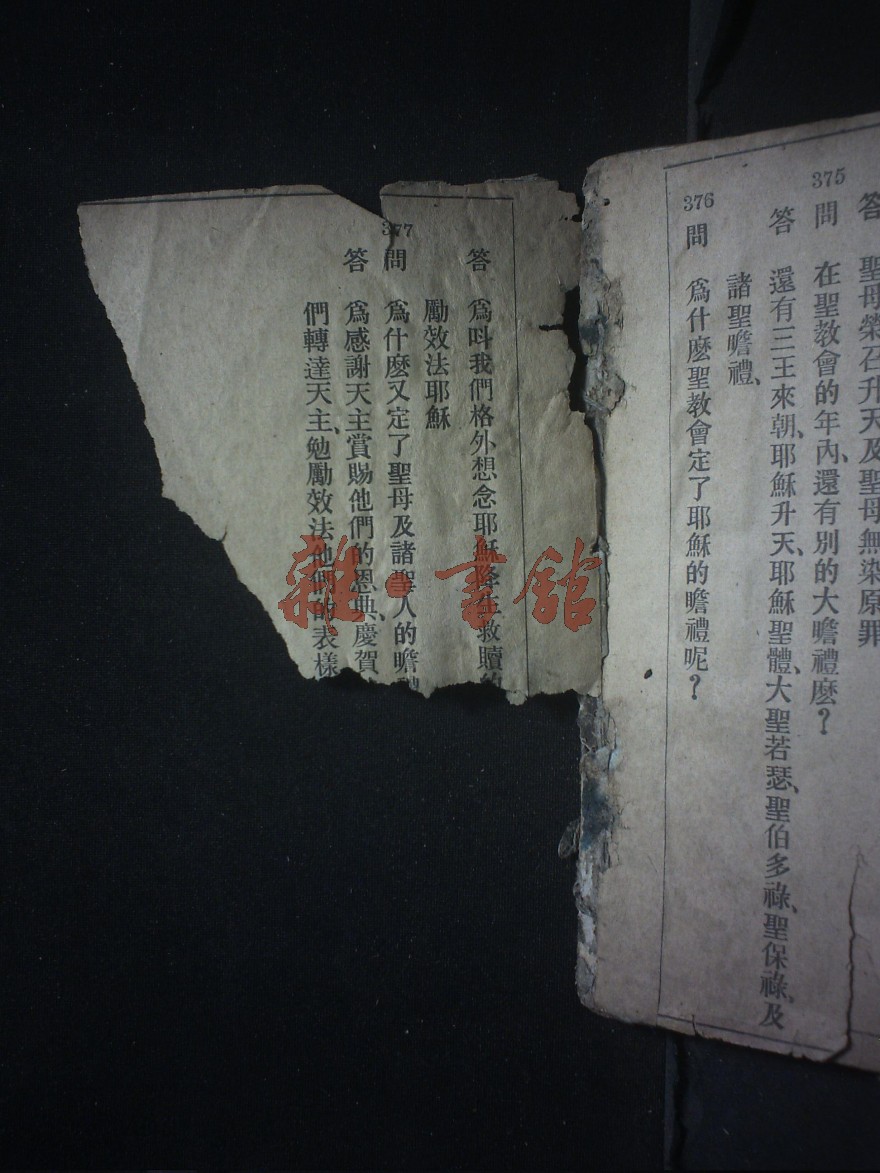 答 聖母榮召升天及聖母無染原罪
375 問 在聖教會的年內、還有別的大瞻禮麽？
答 還有三王來朝、耶穌升天、耶穌聖體、大聖若瑟、聖伯多祿、聖保祿、及
諸聖瞻禮、
376 問 爲什麽聖教會定了耶穌的瞻禮呢？
答 爲呌我們格外想念耶穌降生救贖的
勵效法耶穌
377 問 爲什麽又定了聖母及諸聖人的瞻禮
答 爲感謝天主賞賜他們的恩典、慶賀
們轉達天主、勉勵效法他們的表樣
雜·書館